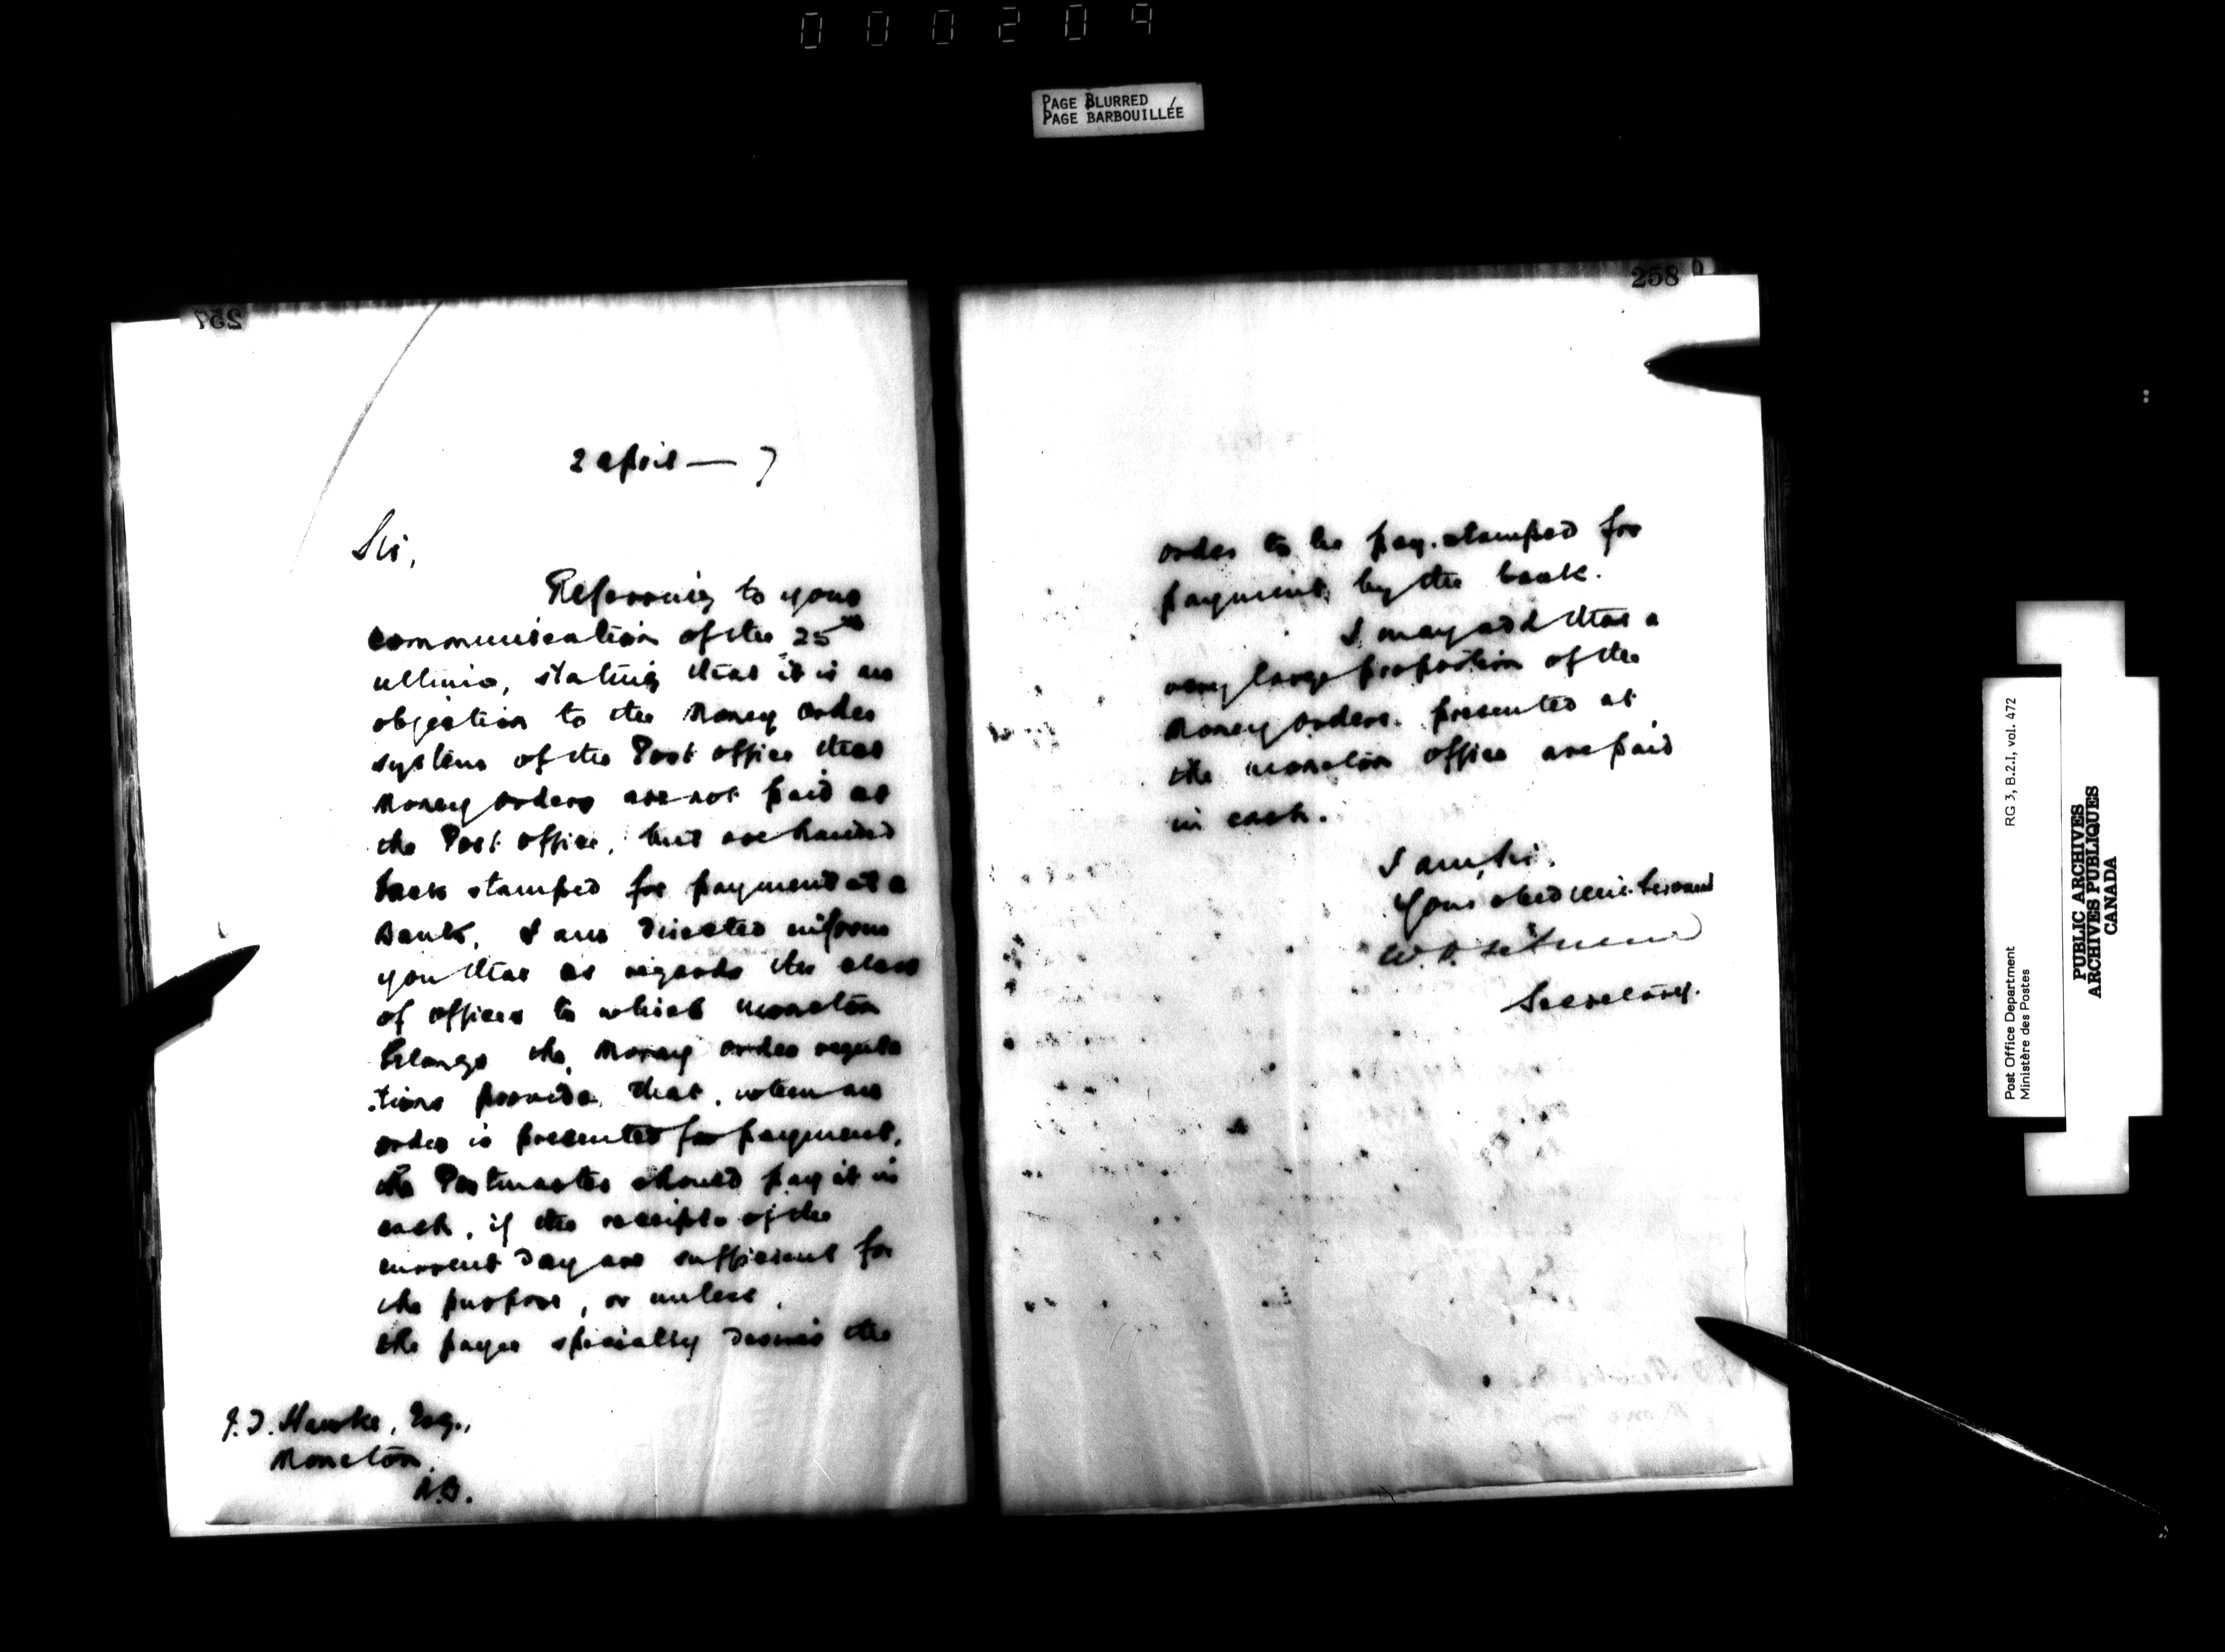 000209
PAGE BLURRED
PAGE BARBOUILLÉE
257
2 April — 7
Sir,
Referring to your
communication of the 25th
ultimo, stating that it is an
objection to the Money Order
system of the Post office that
Money orders are not paid at
the Post office, but are handed
back stamped for payment at a
Bank, I am directed inform
you that as regards the class
of offices to which Moncton
belongs the Money order regula
tions provide that, when an
order is presented for payment,
the Postmaster should pay it in
cash, if the receipts of the
current day are sufficient for
the purpose, or unless,
the payee specially desires the
J.T. Hawke, Esq.,
Moncton,
N.B.
258
order to be pay-stamped for
payment by the bank.
I may add that a
very large proportion of the
Money orders presented at
the Moncton office are paid
in cash.
I am, Sir,
Your obedient servant
W.D.
Secretary.
Post Office Department
Ministère des Postes
RG 3, B.2.I, vol. 472
PUBLIC ARCHIVES
ARCHIVES PUBLIQUES
CANADA